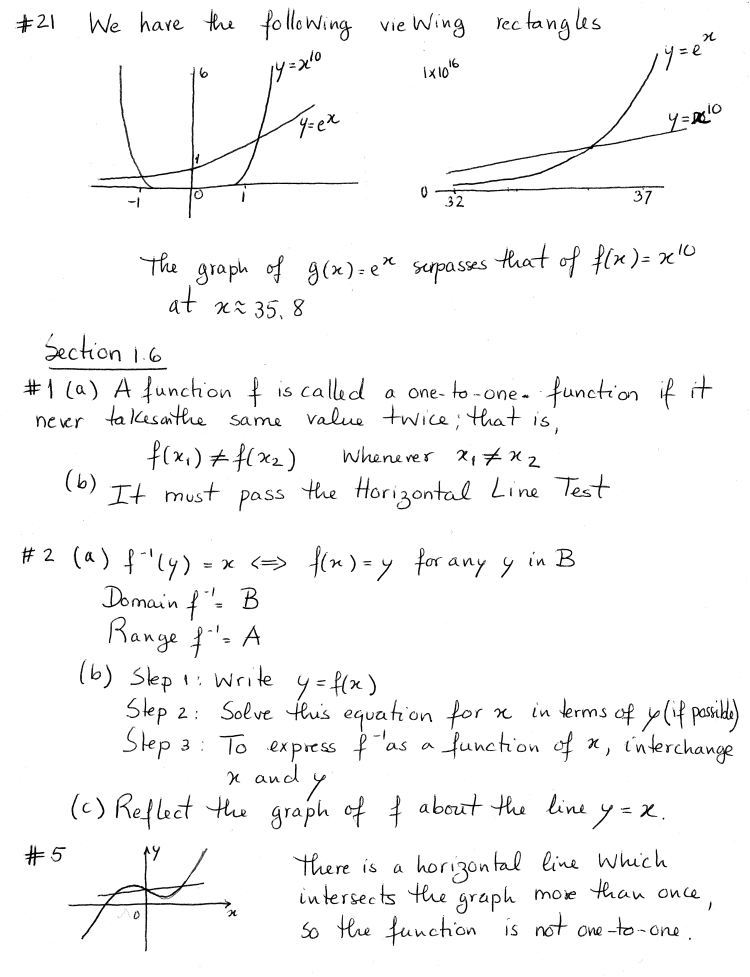 #21 We have the following viewing rectangles
6
y=x^10
y=e^x
1
-1 0 1
1x10^16
y=e^x
y=x^10
0
32 37
The graph of g(x)=e^x surpasses that of f(x)=x^10
at x≈35,8
Section 1.6
#1 (a) A function f is called a one-to-one function if it
never takes on the same value twice; that is,
f(x₁) ≠ f(x₂) Whenever x₁ ≠ x₂
(b) It must pass the Horizontal Line Test
#2 (a) f⁻¹(y) = x <=> f(x) = y for any y in B
Domain f⁻¹ = B
Range f⁻¹ = A
(b) Step 1: Write y = f(x)
Step 2: Solve this equation for x in terms of y (if possible)
Step 3: To express f⁻¹ as a function of x, interchange
x and y
(c) Reflect the graph of f about the line y = x.
#5
y
0 x
There is a horizontal line Which
intersects the graph more than once,
so the function is not one-to-one.